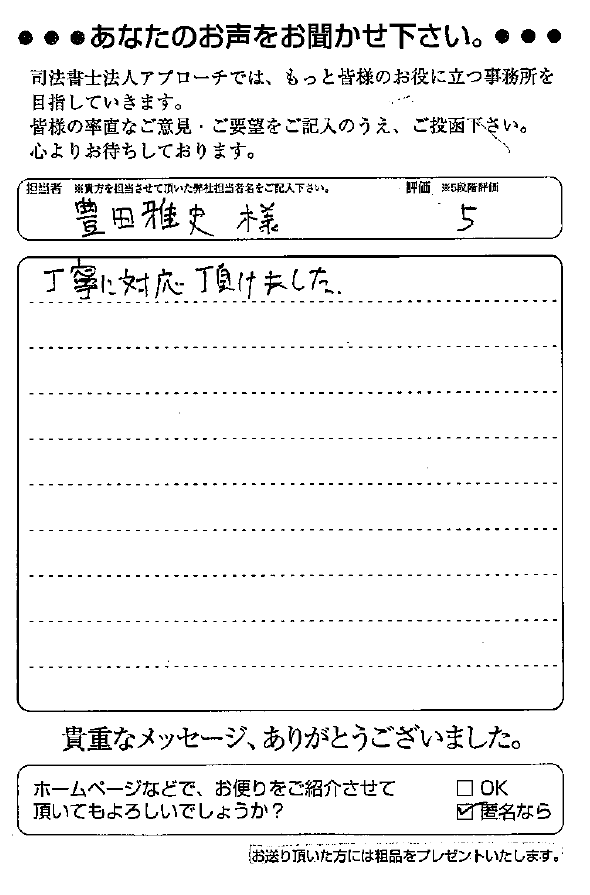 ●●●あなたのお声をお聞かせ下さい。●●●
司法書士法人アプローチでは、もっと皆様のお役に立つ事務所を
目指していきます。
皆様の率直なご意見・ご要望をご記入のうえ、ご投函下さい。
心よりお待ちしております。
担当者 ※貴方を担当させて頂いた弊社担当者名をご記入下さい。 評価 ※5段階評価
豊田雅史 様 5
丁寧に対応頂けました.
貴重なメッセージ、ありがとうございました。
ホームページなどで、お便りをご紹介させて □ OK
頂いてもよろしいでしょうか？ ☑ 匿名なら
お送り頂いた方には粗品をプレゼントいたします。